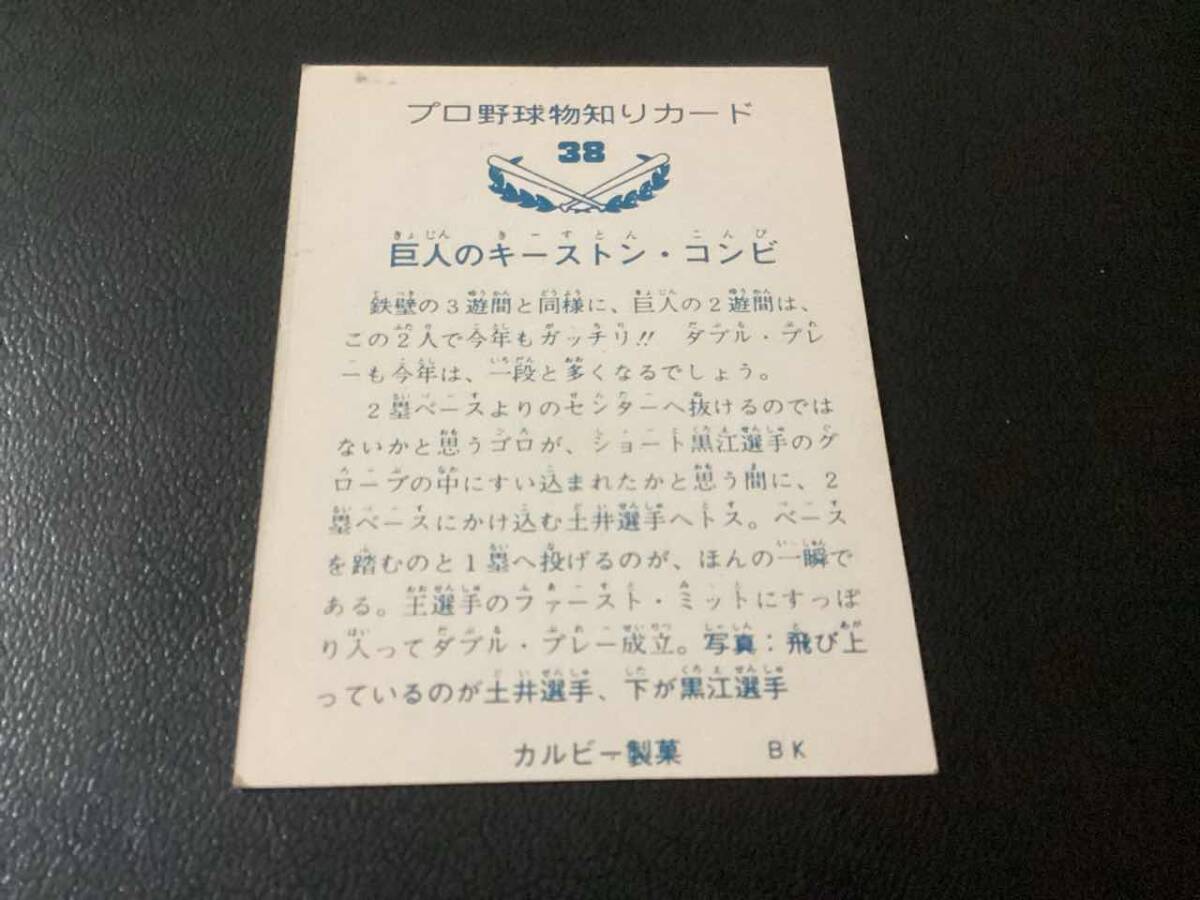 プロ野球物知りカード
38
きょじん きーすとん こんび
巨人のキーストン・コンビ
鉄壁の3遊間と同様に、巨人の2遊間は、
この2人で今年もガッチリ!! ダブル・プレ
ーも今年は、一段と多くなるでしょう。
2塁ベースよりのセンターへ抜けるのでは
ないかと思うゴロが、ショート黒江選手のグ
ローブの中にすい込まれたかと思う間に、2
塁ベースにかけ込む土井選手へトス。ベース
を踏むのと1塁へ投げるのが、ほんの一瞬で
ある。王選手のファースト・ミットにすっぽ
り入ってダブル・プレー成立。写真:飛び上
っているのが土井選手、下が黒江選手
カルビー製菓 BK